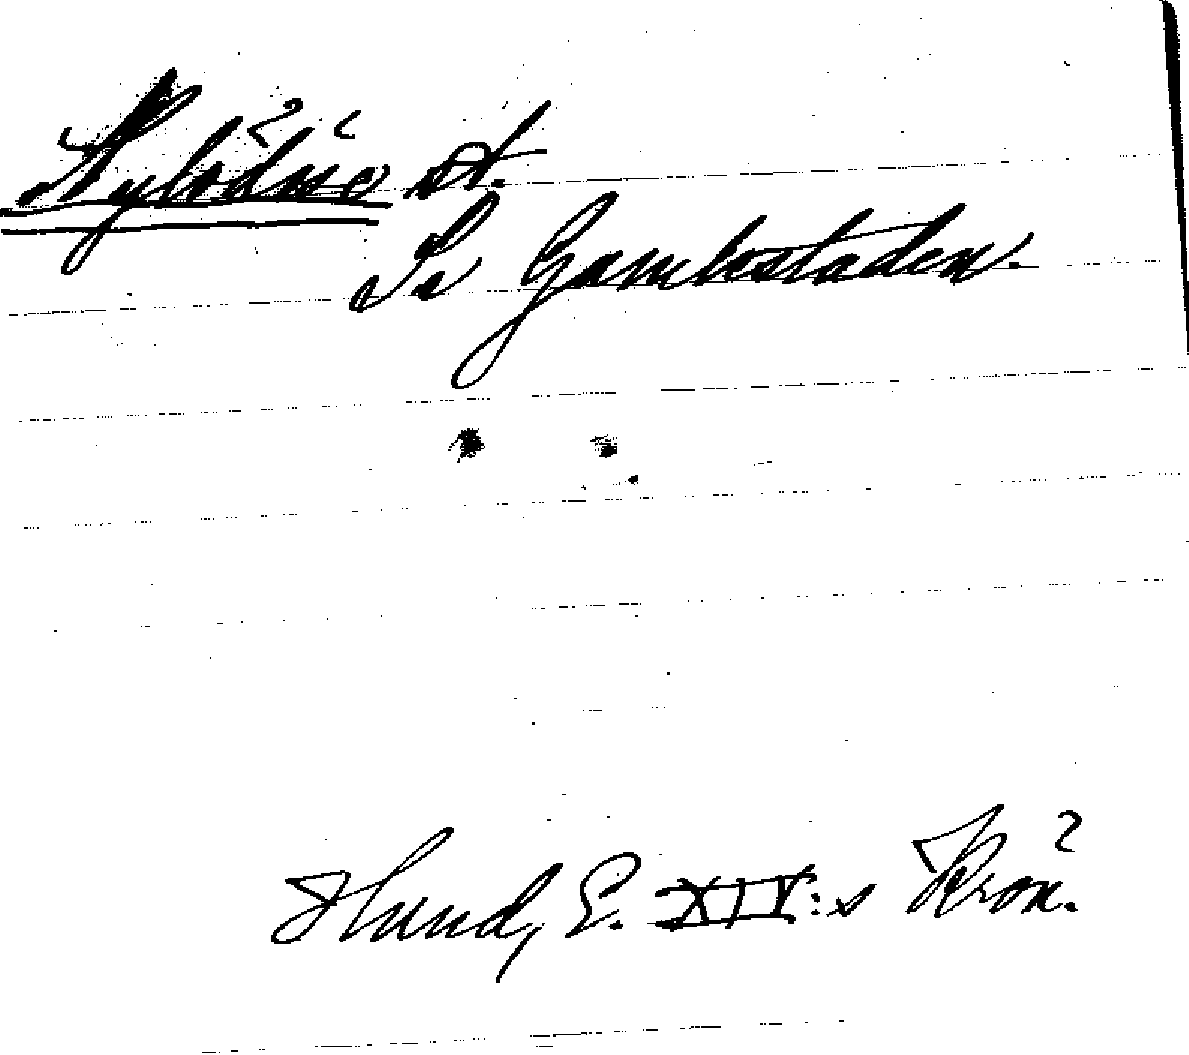 Nylödöse st.
Se Gamlestaden.
Hund, E. XIV:s Krön.